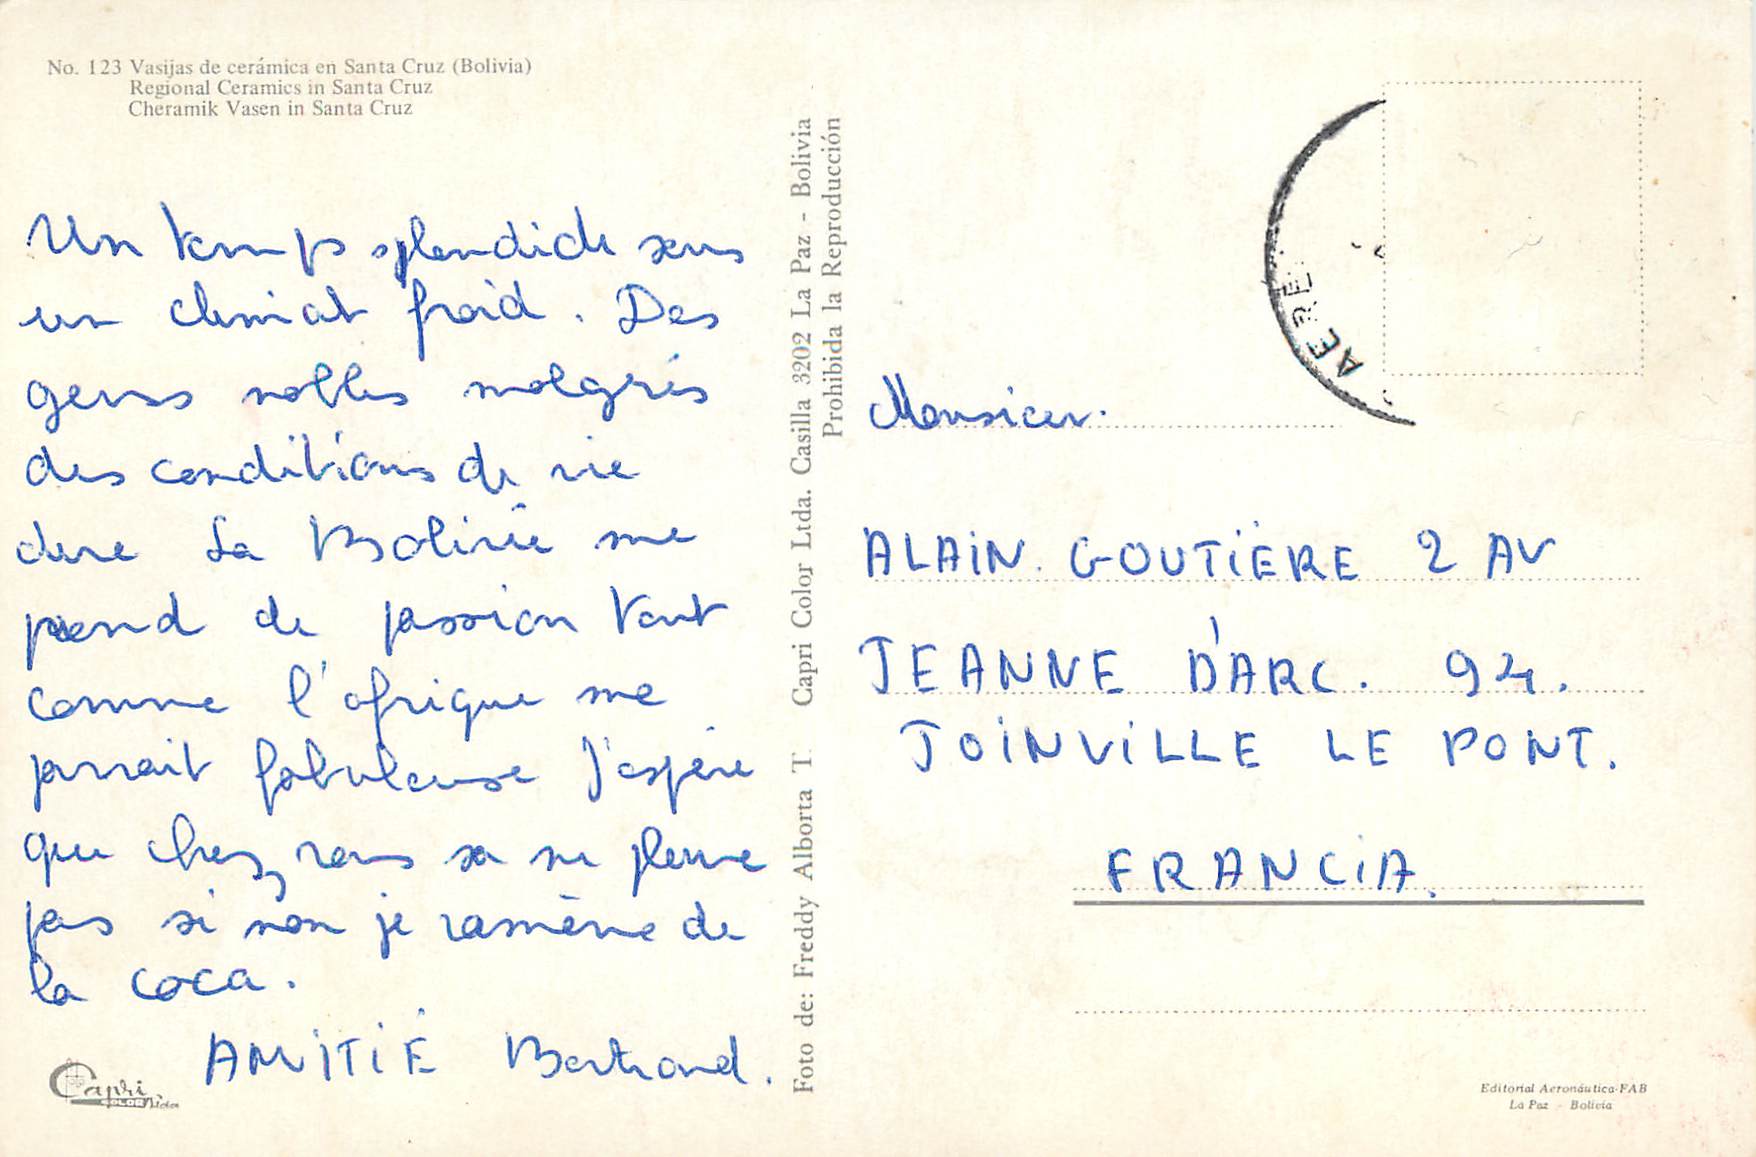 No. 123 Vasijas de cerámica en Santa Cruz (Bolivia)
Regional Ceramics in Santa Cruz
Cheramik Vasen in Santa Cruz
Un temps splendide sous
un climat froid. Des
gens nobles malgrés
des conditions de vie
dure La Bolivie me
prend de passion tout
comme l'afrique me
parrait fabuleuse J'espère
que chez vous sa ne pleuve
pas si non je ramène de
la coca.
AMITIÉ Bertrand.
Capri
COLOR
Foto de: Freddy Alborta T. Capri Color Ltda. Casilla 3202 La Paz - Bolivia
Prohibida la Reproducción
AERE
Monsieur.
ALAIN. GOUTIÈRE 2 AV
JEANNE D'ARC. 94.
JOINVILLE LE PONT.
FRANCIA.
Editorial Aeronáutica-FAB
La Paz - Bolivia